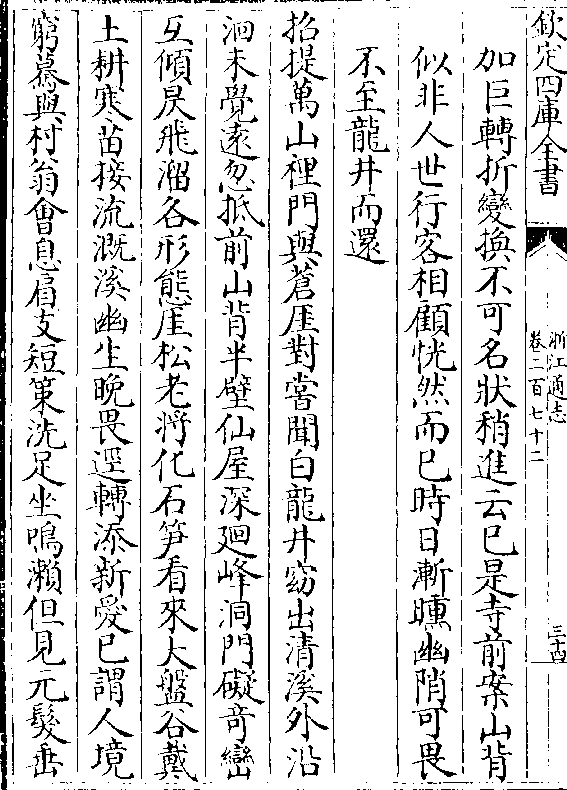 欽定四庫全書
浙江通志
卷二百七十二
三十四
加巨轉折變換不可名狀稍進云已是寺前案山背
似非人世行客相顧恍然而已時日漸曛幽陗可畏
不至龍井而還
招提萬山裡門與蒼厓對嘗聞白龍井窈出清溪外沿
洄未覺遠忽抵前山背半壁仙屋深廻峰洞門礙竒巒
互傾昃飛溜各形態厓松老將化石笋看來大盤谷戴
土耕寒苗接流溉溪幽生晚畏逕轉添新愛已謂人境
窮驀與村翁會息肩支短策洗足坐鳴瀨但見元髮垂